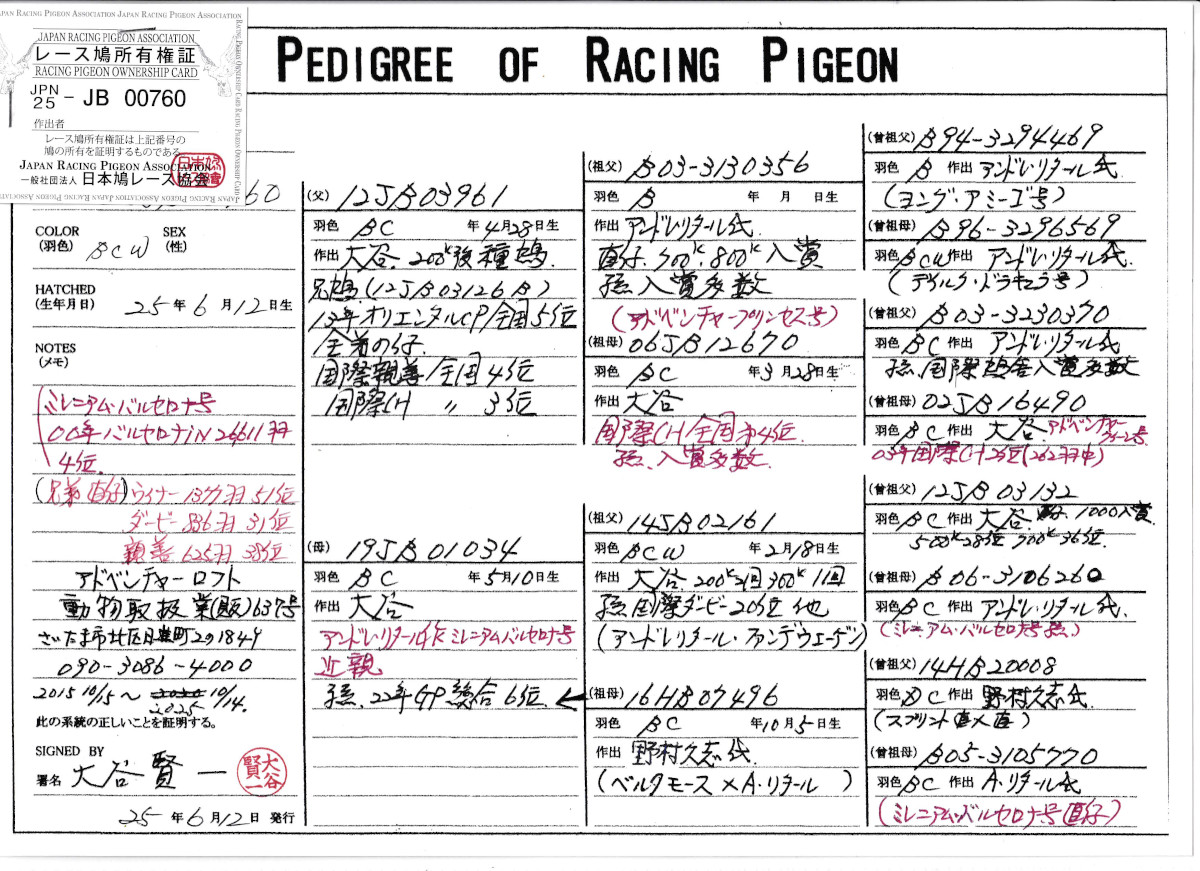 JAPAN RACING PIGEON ASSOCIATION JAPAN RACING PIGEON ASSOCIATION
JAPAN RACING PIGEON ASSOCIATION
レース鳩所有権証
RACING PIGEON OWNERSHIP CARD
JPN
25 - JB 00760
作出者
レース鳩所有権証は上記番号の
鳩の所有を証明するものである。
JAPAN RACING PIGEON ASSOCIATION
一般社団法人 日本鳩レース協会
PEDIGREE OF RACING PIGEON
60
COLOR
(羽色) BCW
SEX
(性)
HATCHED
(生年月日) 25年6月12日生
NOTES
(メモ)
ミレニアム・バルセロナ号
00年バルセロナiN 26611羽
4位.
(兄弟 直仔) ウイナー 137羽 51位
ダービー 836羽 31位
親善 625羽 38位
アドベンチャーロフト
動物取扱業(販)637号
さいたま市北区日進町2の1849
090-3086-4000
2015 10/15~ 2025 10/14.
此の系統の正しいことを証明する。
SIGNED BY
署名 大谷賢一
大谷賢一
25年6月12日 発行
(父) 12JB03961
羽色 BC 年4月28日生
作出 大谷. 200K後種鳩.
兄鳩(12JB03126B)
13年オリエンタルCP/全国5位
全着の仔.
国際親善/全国4位
国際CH 〃 3位
(母) 19JB01034
羽色 BC 年5月10日生
作出 大谷
アンドレ・リタール作 ミレニアムバルセロナ号
近親
孫. 22年GP総合6位 ←
(祖父) B03-3130356
羽色 B 年 月 日生
作出 アンドレ・リタール氏.
直仔. 700K. 800K入賞
孫入賞多数
(アドベンチャープリンセス号)
(祖母) 06JB12670
羽色 BC 年3月28日生
作出 大谷
国際CH/全国第4位.
孫. 入賞多数.
(祖父) 14JB02161
羽色 BCW 年2月18日生
作出 大谷. 200K2回300K1回
孫国際ダービー20位 他
(アンドレリタール・ファンデウェーデン)
(祖母) 16HB07496
羽色 BC 年10月5日生
作出 野村久志氏
(ベルクモース×A・リタール )
(曽祖父) B94-3294469
羽色 B 作出 アンドレ・リタール氏.
(ヨング・アミーゴ号)
(曽祖母) B96-3296569
羽色 BCW 作出 アンドレ・リタール氏.
(ディルク・ドラキュラ号)
(曽祖父) B03-3230370
羽色 BC 作出 アンドレ・リタール氏
孫. 国際鳩舎入賞多数
(曽祖母) 02JB16490
羽色 BC 作出 大谷 アドベンチャークィーン号
05年国際CH26位(262羽中)
(曽祖父) 12JB03132
羽色 BC 作出 大谷 1000入賞.
500K28位 700K36位.
(曽祖母) B06-3106260
羽色 BC 作出 アンドレ・リタール氏.
(ミレニアム・バルセロナ号孫)
(曽祖父) 14HB20008
羽色 DC 作出 野村久志氏
(スプリント直×直)
(曽祖母) B05-3105770
羽色 BC 作出 A・リタール氏
(ミレニアム・バルセロナ号直仔)